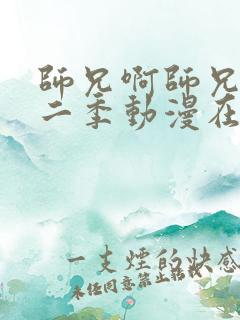 師兄啊師兄
二季動漫在
一支煙的快感
未經同意禁止轉載